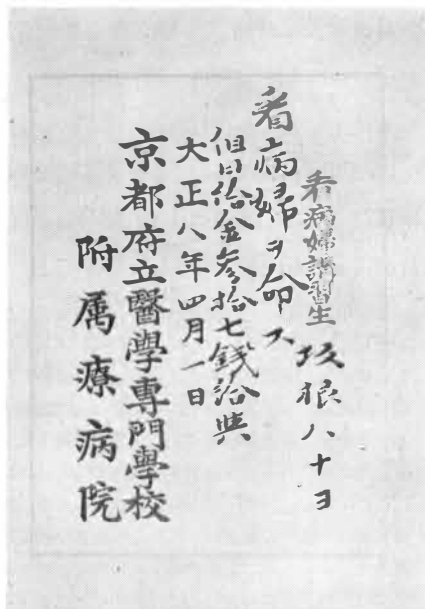 看病婦講習生
坂根八十ヨ
看病婦ヲ命ス
但日給金参拾七錢給與
大正八年四月一日
京都府立醫學專門學校
附属療病院